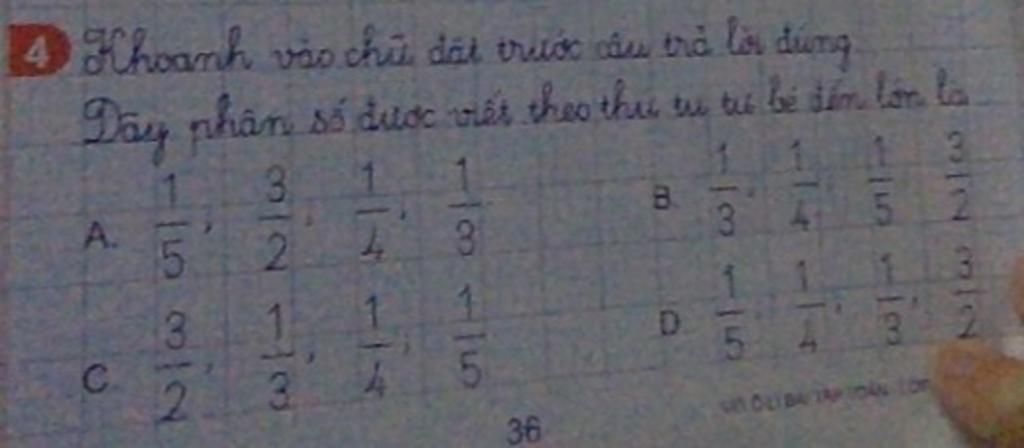 4 Khoanh vào chữ đặt trước câu trả lời đúng
Dãy phân số được viết theo thứ tự từ bé đến lớn là
A. 1/5; 3/2; 1/4; 1/3
B. 1/3; 1/4; 1/5; 3/2
C. 3/2; 1/3; 1/4; 1/5
D. 1/5; 1/4; 1/3; 3/2
36
VỞ Ô LI BÀI TẬP TOÁN - LỚP